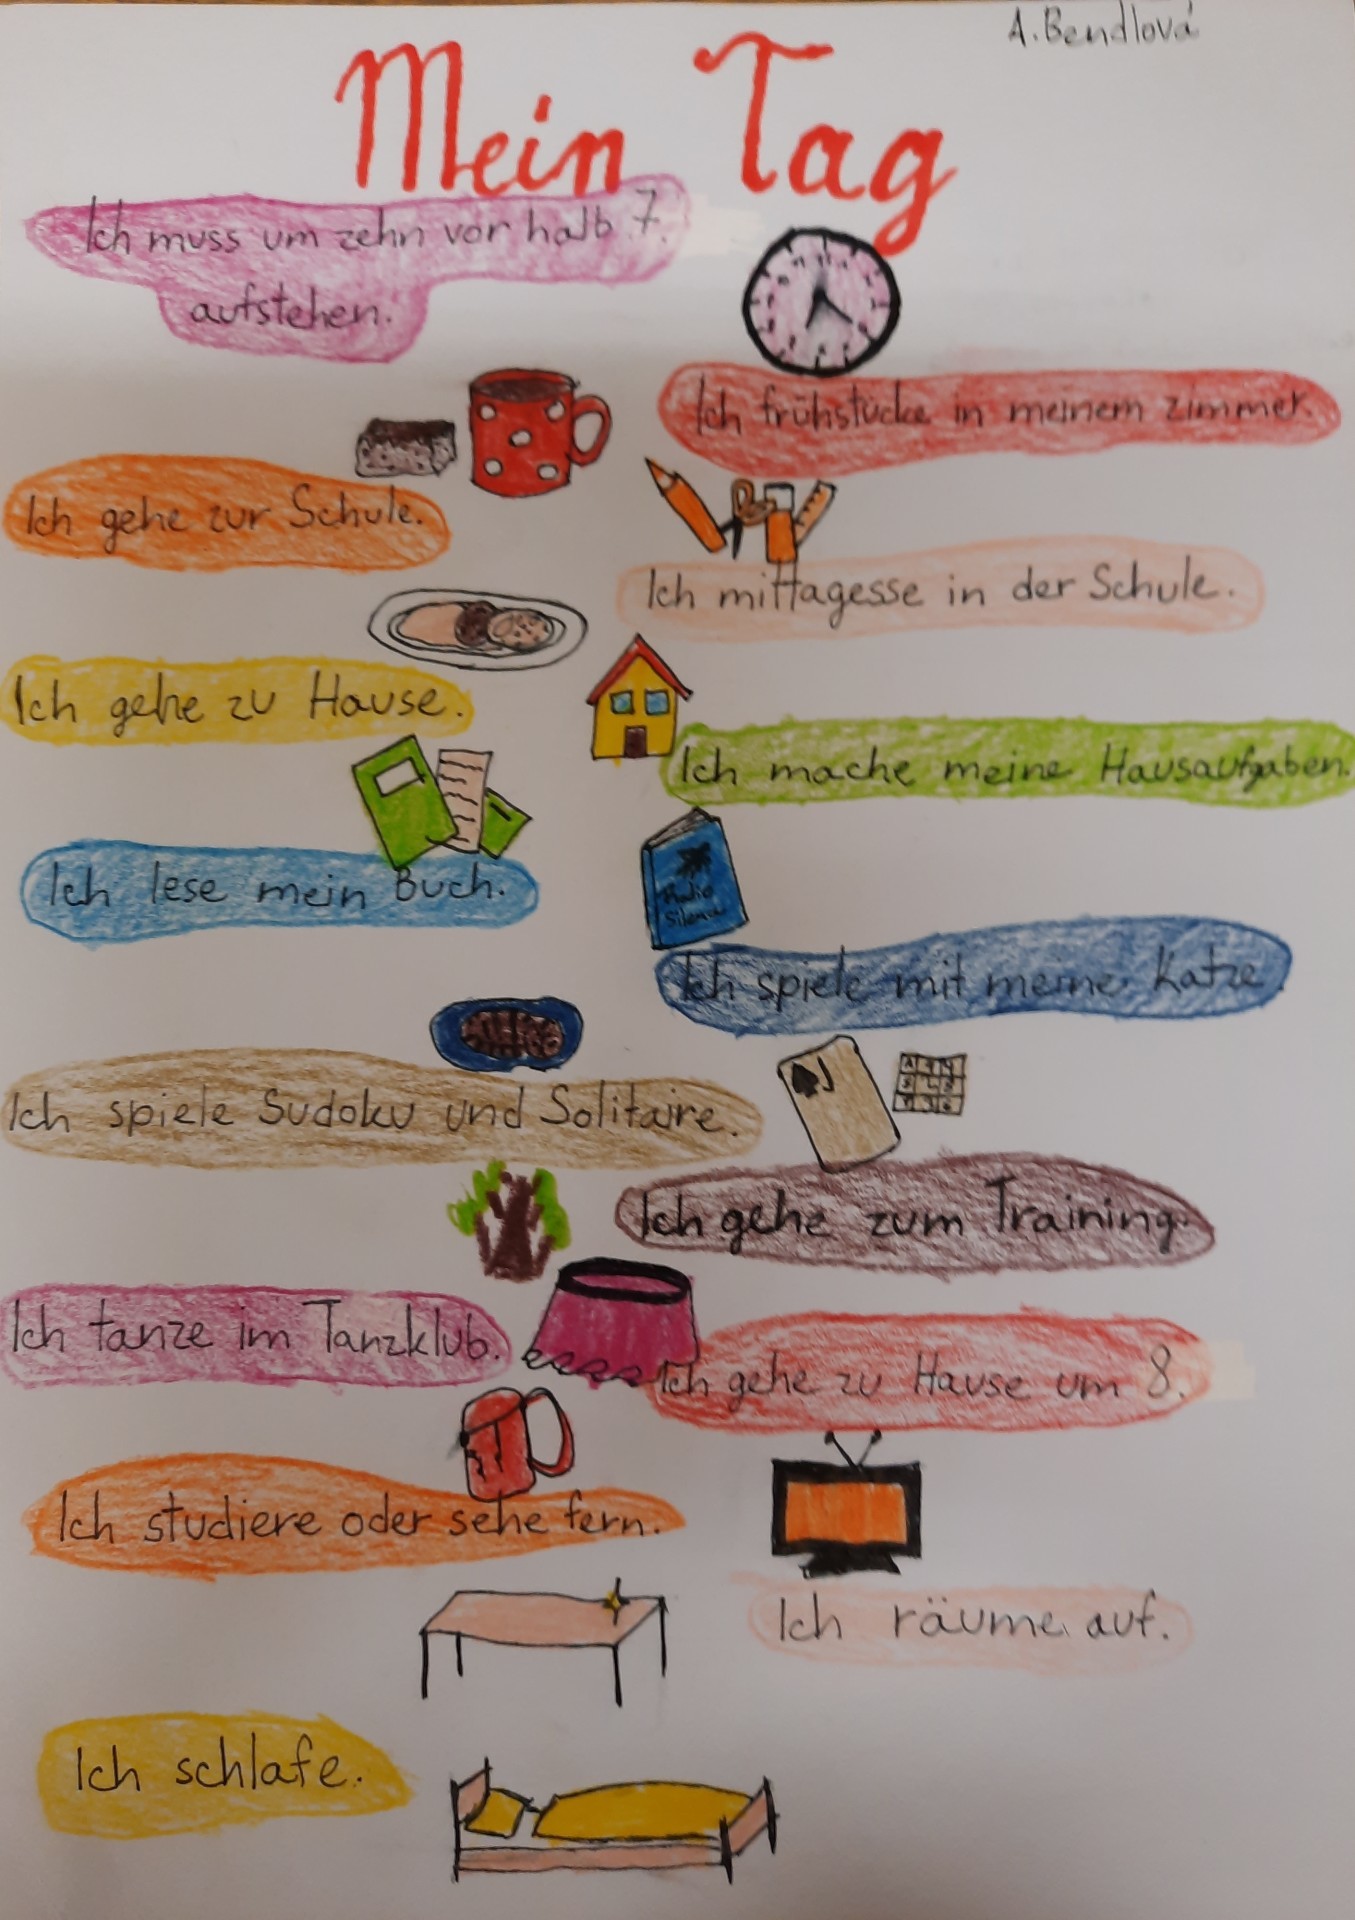 A. Bendlová
Mein Tag
Ich muss um zehn vor halb 7.
aufstehen.
Ich frühstücke in meinem zimmer.
Ich gehe zur Schule.
Ich mittagesse in der Schule.
Ich gehe zu Hause.
Ich mache meine Hausaufgaben.
Ich lese mein Buch.
Radio
Silence
Ich spiele mit meiner Katze.
Ich spiele Sudoku und Solitaire.
J
Ich gehe zum Training.
Ich tanze im Tanzklub.
Ich gehe zu Hause um 8.
Ich studiere oder sehe fern.
Ich räume auf.
Ich schlafe.